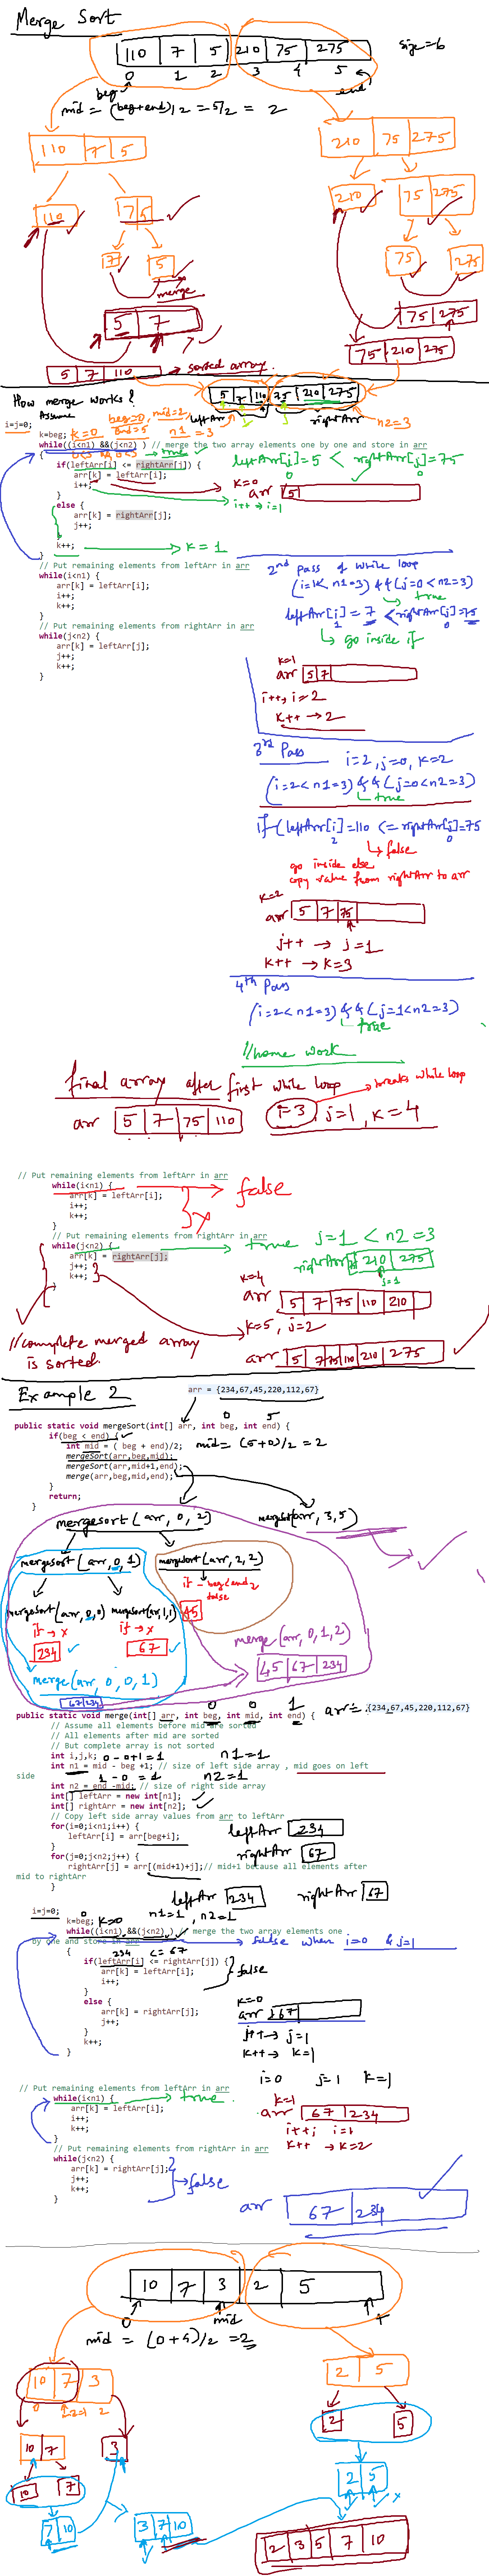 Merge Sort
110 7 5 210 75 275 size=6
0 1 2 3 4 5
beg end
mid = (beg+end)/2 = 5/2 = 2
110 7 5 210 75 275
110 7 5 210 75 275
7 5 75 275
merge
5 7 75 275
75 210 275
5 7 110 → sorted array.
How merge works?
5 7 110 75 210 275
leftArr rightArr
n2=3
Assume beg=0, mid=2,
end=5
n1=3
i=j=0;
k=beg; k=0
while((i<n1) &&(j<n2) ) // merge the two array elements one by one and store in arr
{ 0<3 && 0<3 → true
if(leftArr[i] <= rightArr[j]) {
arr[k] = leftArr[i];
i++;
}
else {
arr[k] = rightArr[j];
j++;
}
k++;
}
leftArr[i]=5 < rightArr[j]=75
0 0
k=0
arr 5
i++ → i=1
k=1
// Put remaining elements from leftArr in arr
while(i<n1) {
arr[k] = leftArr[i];
i++;
k++;
}
// Put remaining elements from rightArr in arr
while(j<n2) {
arr[k] = leftArr[j];
j++;
k++;
}
2nd pass of while loop
(i=1< n1=3) &&(j=0<n2=3)
true
leftArr[i] = 7 < rightArr[j]=75
1 0
go inside if
k=1
arr 5 7
i++, i=2
k++ → 2
3rd Pass i=2, j=0, k=2
(i=2<n1=3) && (j=0<n2=3)
true
if (leftArr[i]=110 <= rightArr[j]=75
2 0
false
go inside else
copy value from rightArr to arr
k=2
arr 5 7 75
j++ → j=1
k++ → k=3
4th Pass
(i=2<n1=3) && (j=1<n2=3)
true
//home work
final array after first while loop
breaks while loop
arr 5 7 75 110 i=3 j=1, k=4
// Put remaining elements from leftArr in arr
while(i<n1) { false
arr[k] = leftArr[i];
i++;
k++;
}
// Put remaining elements from rightArr in arr
while(j<n2) { true j=1 < n2=3
arr[k] = rightArr[j]; rightArr 210 275
j++; j=1
k++;
}
k=4
arr 5 7 75 110 210
k=5, j=2
arr 5 7 75 110 210 275
//complete merged array
is sorted.
Example 2 arr = {234,67,45,220,112,67}
0 5
public static void mergeSort(int[] arr, int beg, int end) {
if(beg < end) {
int mid = ( beg + end)/2; mid = (5+0)/2 = 2
mergeSort(arr,beg,mid);
mergeSort(arr,mid+1,end);
merge(arr,beg,mid,end);
}
return;
}
mergesort(arr, 0, 2) mergesort(arr, 3, 5)
mergesort(arr, 0, 1) mergesort(arr, 2, 2)
if - beg<end
false
mergesort(arr, 0, 0) mergesort(arr, 1, 1) 45
if → x if → x
234 67
merge(arr, 0, 1, 2)
45 67 234
merge(arr, 0, 0, 1)
67 234
0 0 1 arr = {234,67,45,220,112,67}
public static void merge(int[] arr, int beg, int mid, int end) {
// Assume all elements before mid are sorted
// All elements after mid are sorted
// But complete array is not sorted
int i,j,k; 0-0+1=1 n1=1
int n1 = mid - beg +1; // size of left side array , mid goes on left
side 1-0=1 n2=1
int n2 = end -mid; // size of right side array
int[] leftArr = new int[n1];
int[] rightArr = new int[n2];
// Copy left side array values from arr to leftArr
for(i=0;i<n1;i++) {
leftArr[i] = arr[beg+i];
}
for(j=0;j<n2;j++) {
rightArr[j] = arr[(mid+1)+j];// mid+1 because all elements after
mid to rightArr
}
leftArr 234
rightArr 67
leftArr 234 rightArr 67
i=j=0; 0 n1=1, n2=1
k=beg; k=0
while((i<n1) &&(j<n2) ) // merge the two array elements one
by one and store in arr
false when i=0 & j=1
{ 234 <= 67
if(leftArr[i] <= rightArr[j]) {
arr[k] = leftArr[i];
i++;
} false
else {
arr[k] = rightArr[j];
j++;
}
k++;
}
k=0
arr 67
j++ → j=1
k++ → k=1
i=0 j=1 k=1
// Put remaining elements from leftArr in arr
while(i<n1) { true.
arr[k] = leftArr[i];
i++;
k++;
}
k=1
arr 67 234
i++; i=1
k++ → k=2
// Put remaining elements from rightArr in arr
while(j<n2) {
arr[k] = rightArr[j];
j++; false
k++;
}
arr 67 234
10 7 3 2 5
0 mid 4
mid = (0+4)/2 = 2
10 7 3 2 5
0 1 2
10 7 3 2 5
10 7 2 5
7 10 3 7 10
2 3 5 7 10